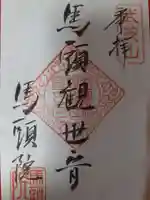 奉拝
馬頭観世音
馬頭院